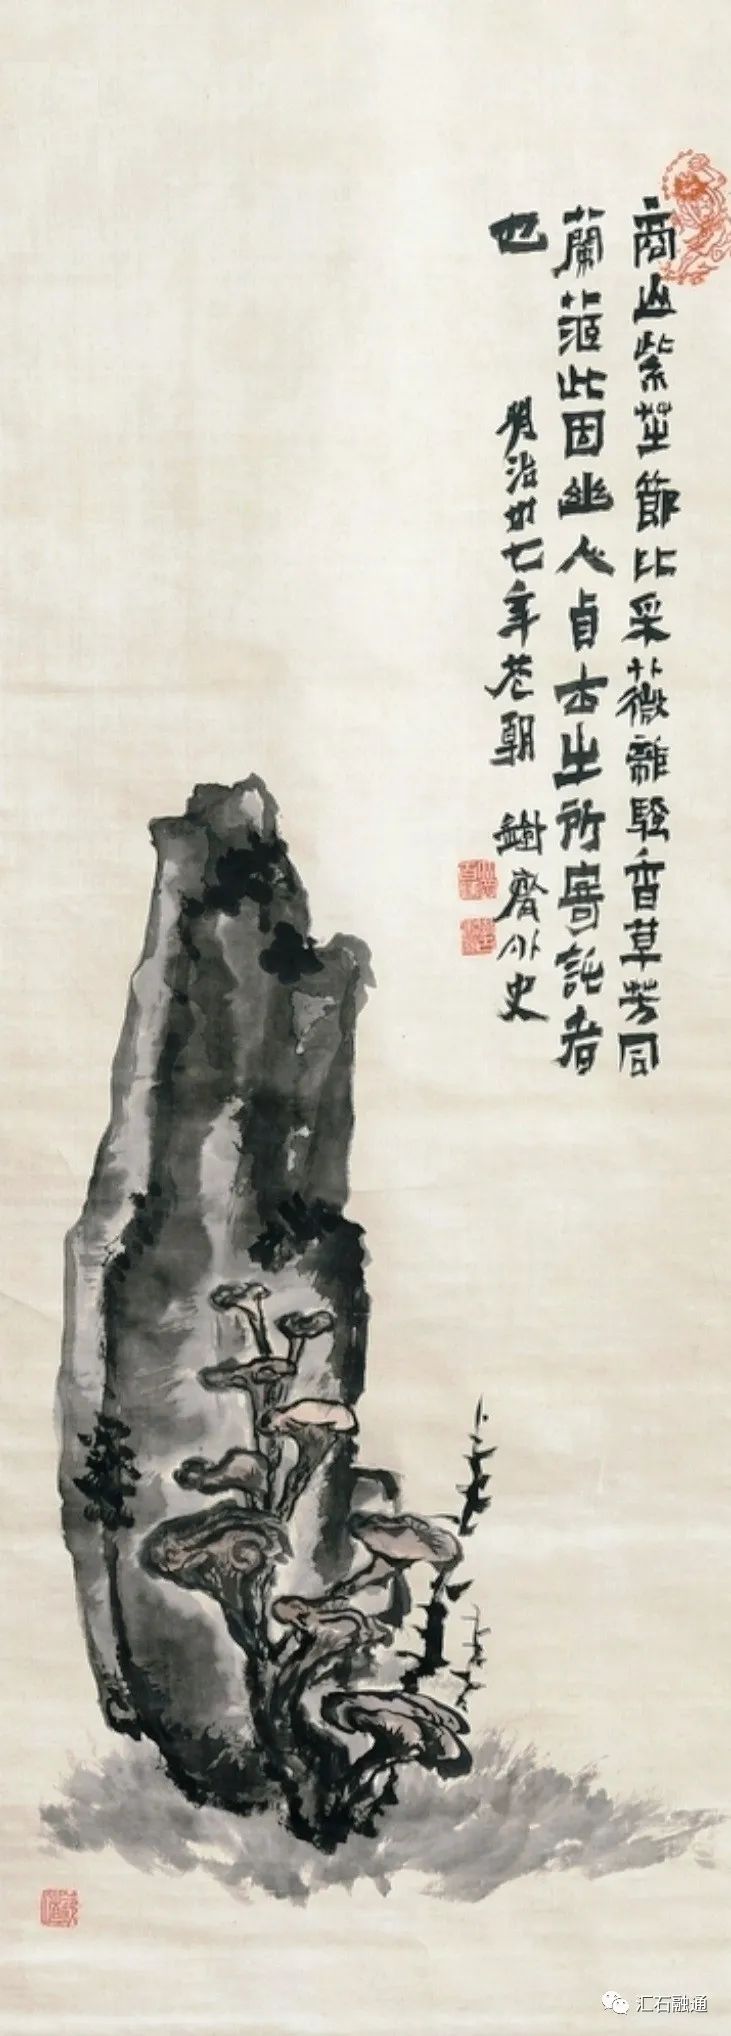 商山紫芝節比采薇離騷香草芳同
蘭茝此固幽人貞士之所寄託者
也
明治卅七年花朝 鐵齋外史
汇石融通